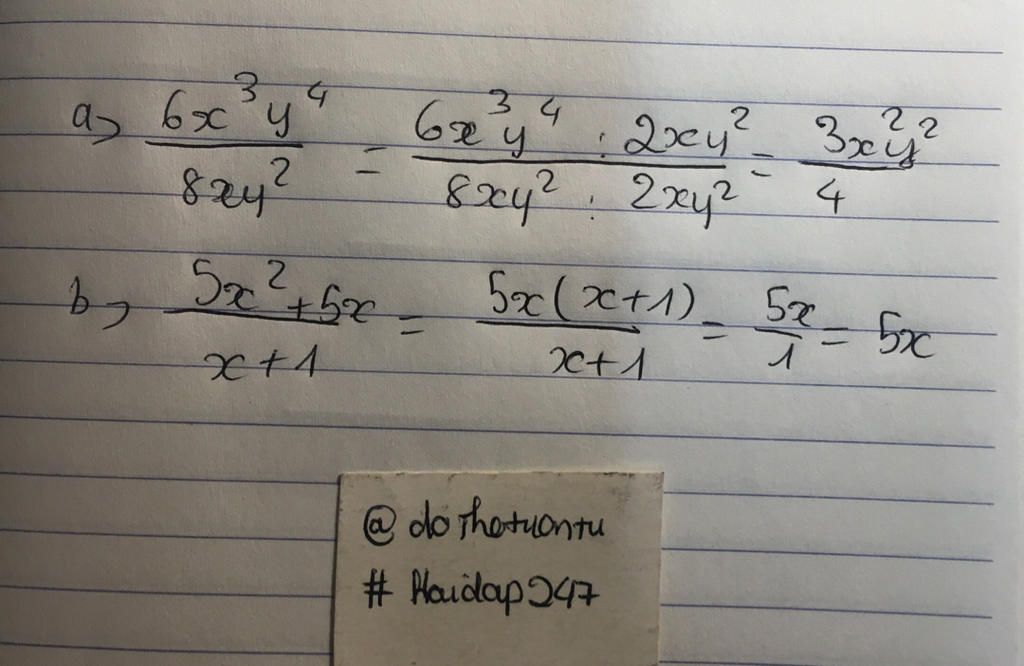 a) 6x³y⁴ / 8xy² = 6x³y⁴ : 2xy² / 8xy² : 2xy² = 3x²y² / 4
b) 5x² + 5x / x + 1 = 5x(x+1) / x+1 = 5x / 1 = 5x
# Hoidap247